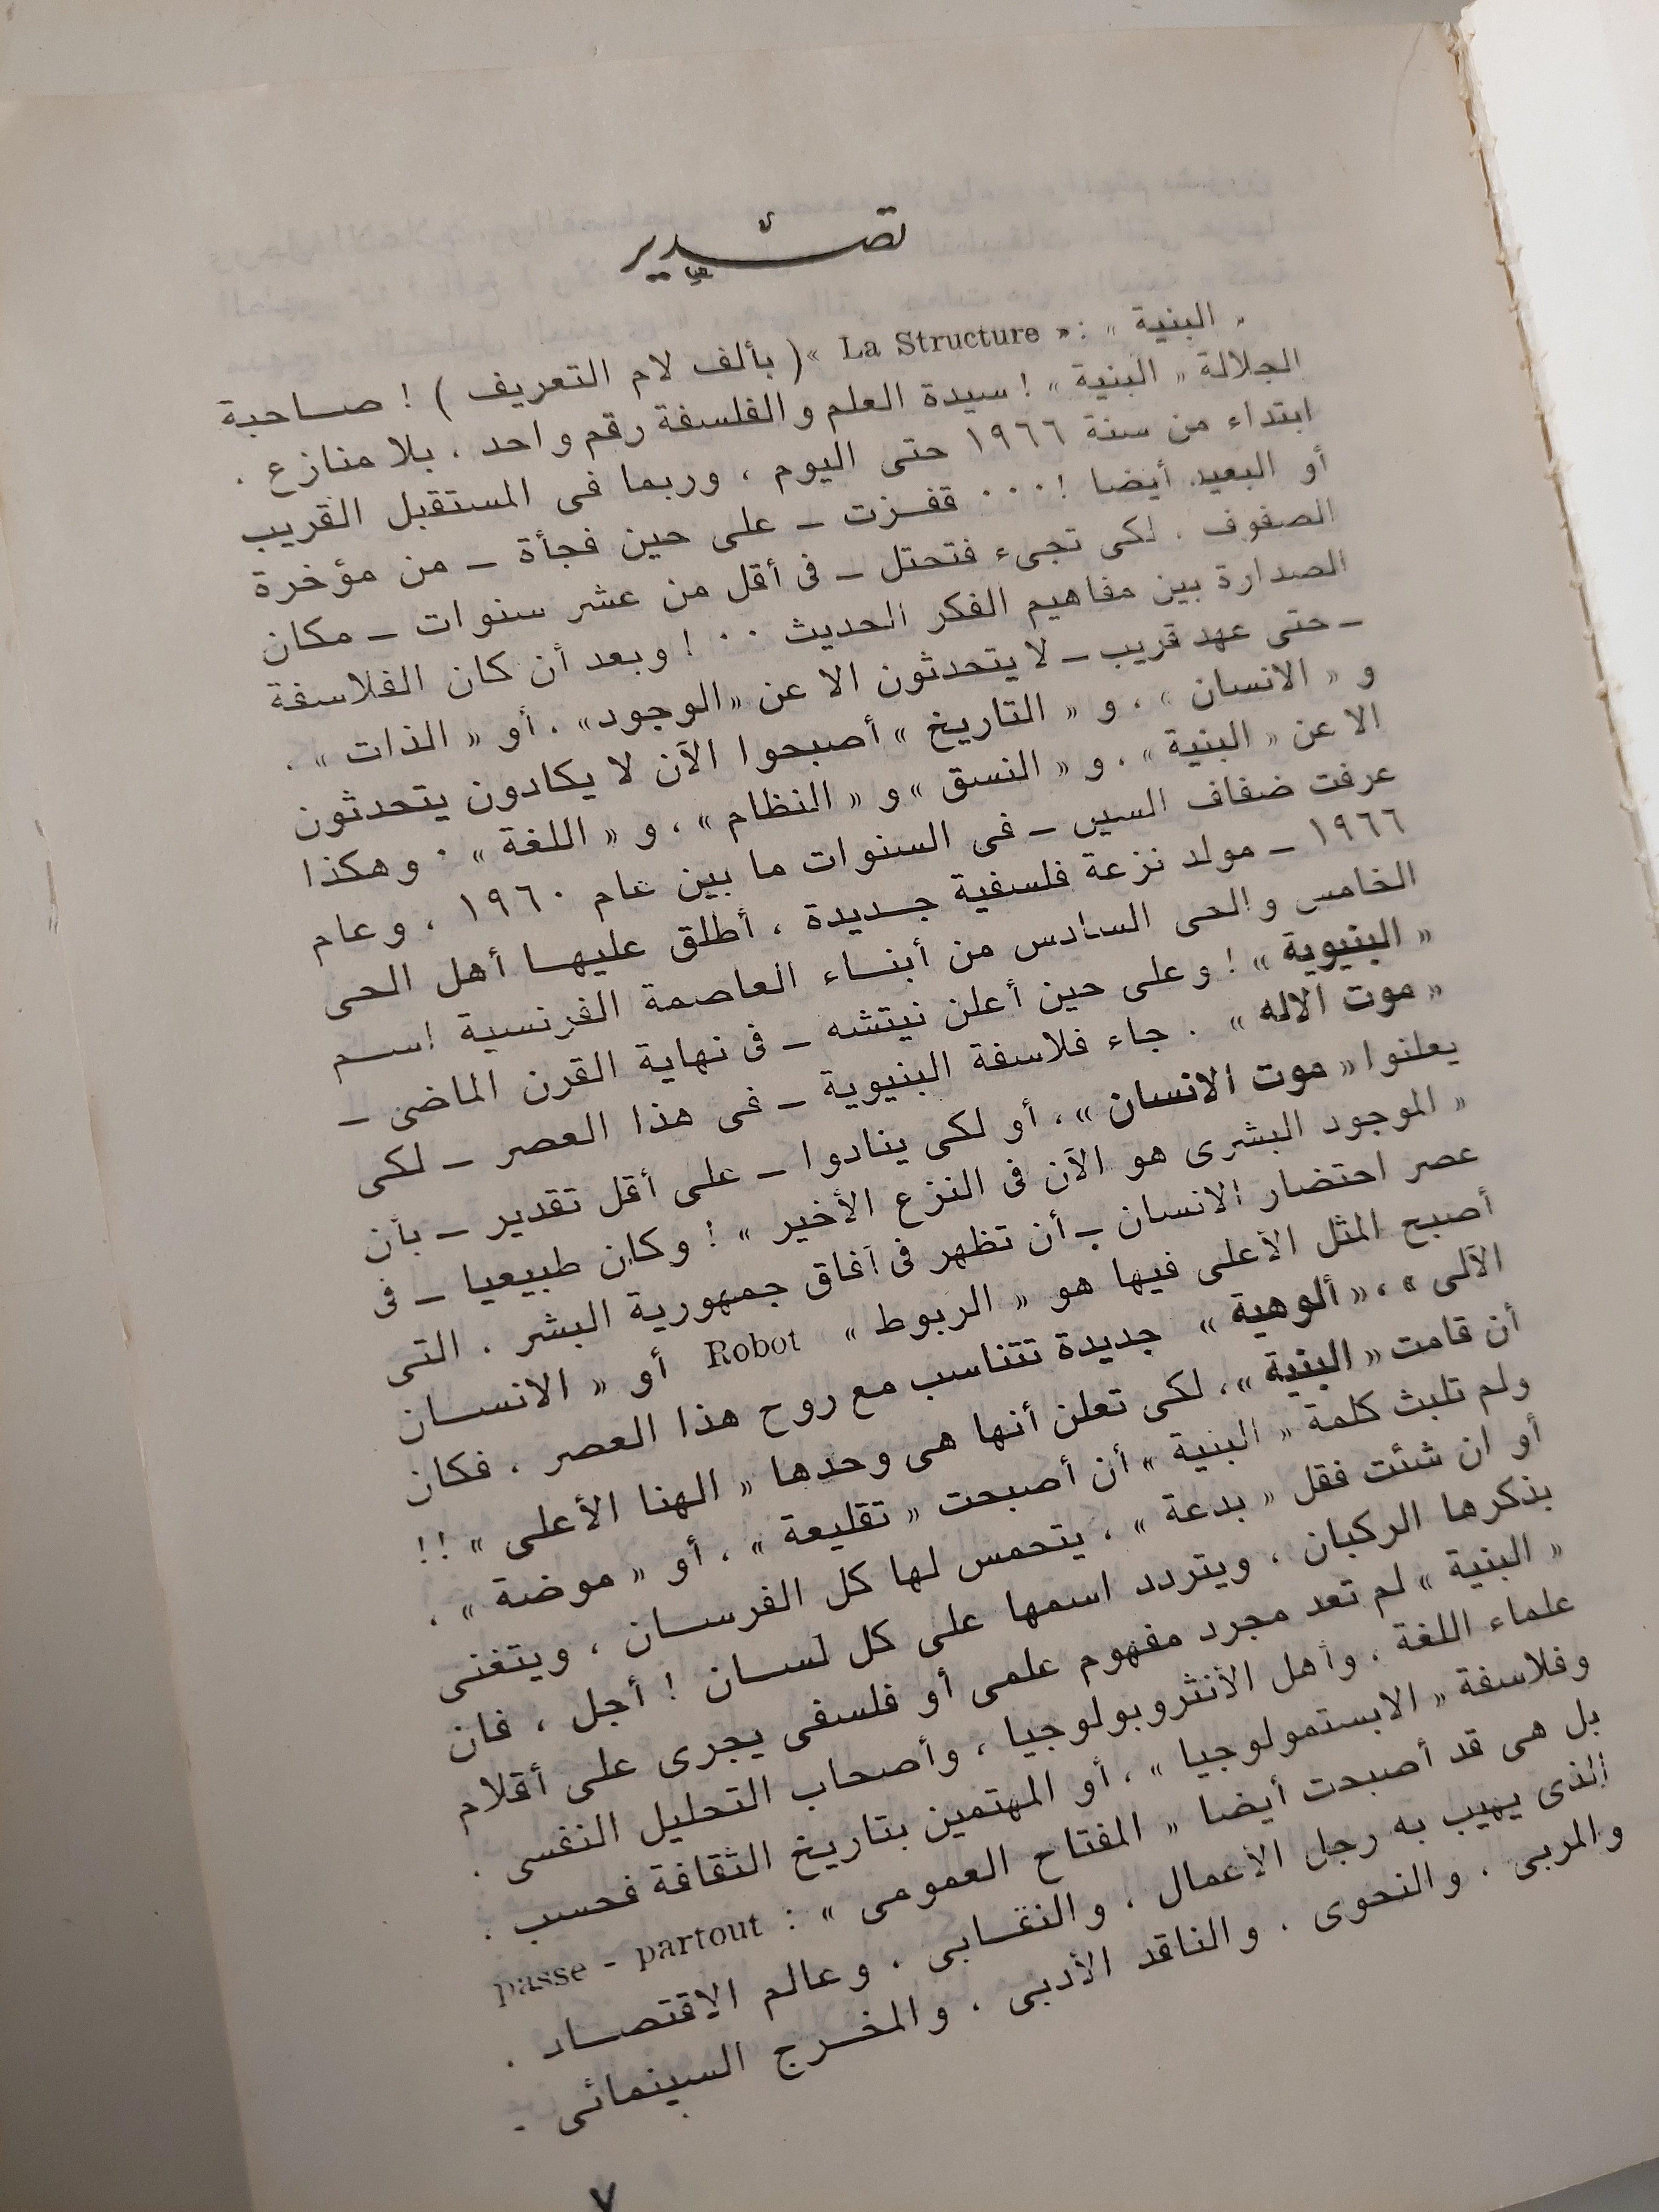 تصدير
« البنية » : « La Structure » ( بألف لام التعريف ) ! صاحبة
الجلالة « البنية » ! سيدة العلم والفلسفة رقم واحد ، بلا منازع .
ابتداء من سنة ١٩٦٦ حتى اليوم ، وربما فى المستقبل القريب
أو البعيد أيضا !٠٠٠ قفزت – على حين فجأة – من مؤخرة
الصفوف ، لكى تجىء فتحتل – فى أقل من عشر سنوات – مكان
الصدارة بين مفاهيم الفكر الحديث ٠٠ ! وبعد أن كان الفلاسفة
– حتى عهد قريب – لا يتحدثون الا عن «الوجود» ، أو « الذات » ،
و « الانسان » ، و « التاريخ » أصبحوا الآن لا يكادون يتحدثون
الا عن « البنية » ، و « النسق » و « النظام » ، و « اللغة » ٠ وهكذا
عرفت ضفاف السين – فى السنوات ما بين عام ١٩٦٠ ، وعام
١٩٦٦ – مولد نزعة فلسفية جديدة ، أطلق عليها أهل الحى
الخامس والحى السادس من أبناء العاصمة الفرنسية اسم
« البنيوية » ! وعلى حين أعلن نيتشه – فى نهاية القرن الماضى –
« موت الاله » ٠ جاء فلاسفة البنيوية – فى هذا العصر – لكى
يعلنوا « موت الانسان » ، أو لكى ينادوا – على أقل تقدير – بأن
« الموجود البشرى هو الآن فى النزع الأخير » ! وكان طبيعيا – فى
عصر احتضار الانسان – أن تظهر فى آفاق جمهورية البشر ، التى
أصبح المثل الأعلى فيها هو « الربوط » Robot أو « الانسان
الآلى » ، « ألوهية » جديدة تتناسب مع روح هذا العصر ، فكان
أن قامت « البنية » ، لكى تعلن أنها هى وحدها « الهنا الأعلى » !!
ولم تلبث كلمة « البنية » أن أصبحت « تقليعة » ، أو « موضة » ،
أو ان شئت فقل « بدعة » ، يتحمس لها كل الفرسان ، ويتغنى
بذكرها الركبان ، ويتردد اسمها على كل لسان ! أجل ، فان
« البنية » لم تعد مجرد مفهوم علمى أو فلسفى يجرى على أقلام
علماء اللغة ، وأهل الأنثروبولوجيا ، وأصحاب التحليل النفسى ،
وفلاسفة « الابستمولوجيا » ، أو المهتمين بتاريخ الثقافة فحسب ،
بل هى قد أصبحت أيضا « المفتاح العمومى » : passe - partout
الذى يهيب به رجل الأعمال ، والنقابى ، وعالم الاقتصاد ،
والمربى ، والنحوى ، والناقد الأدبى ، والمخرج السينمائى
٧